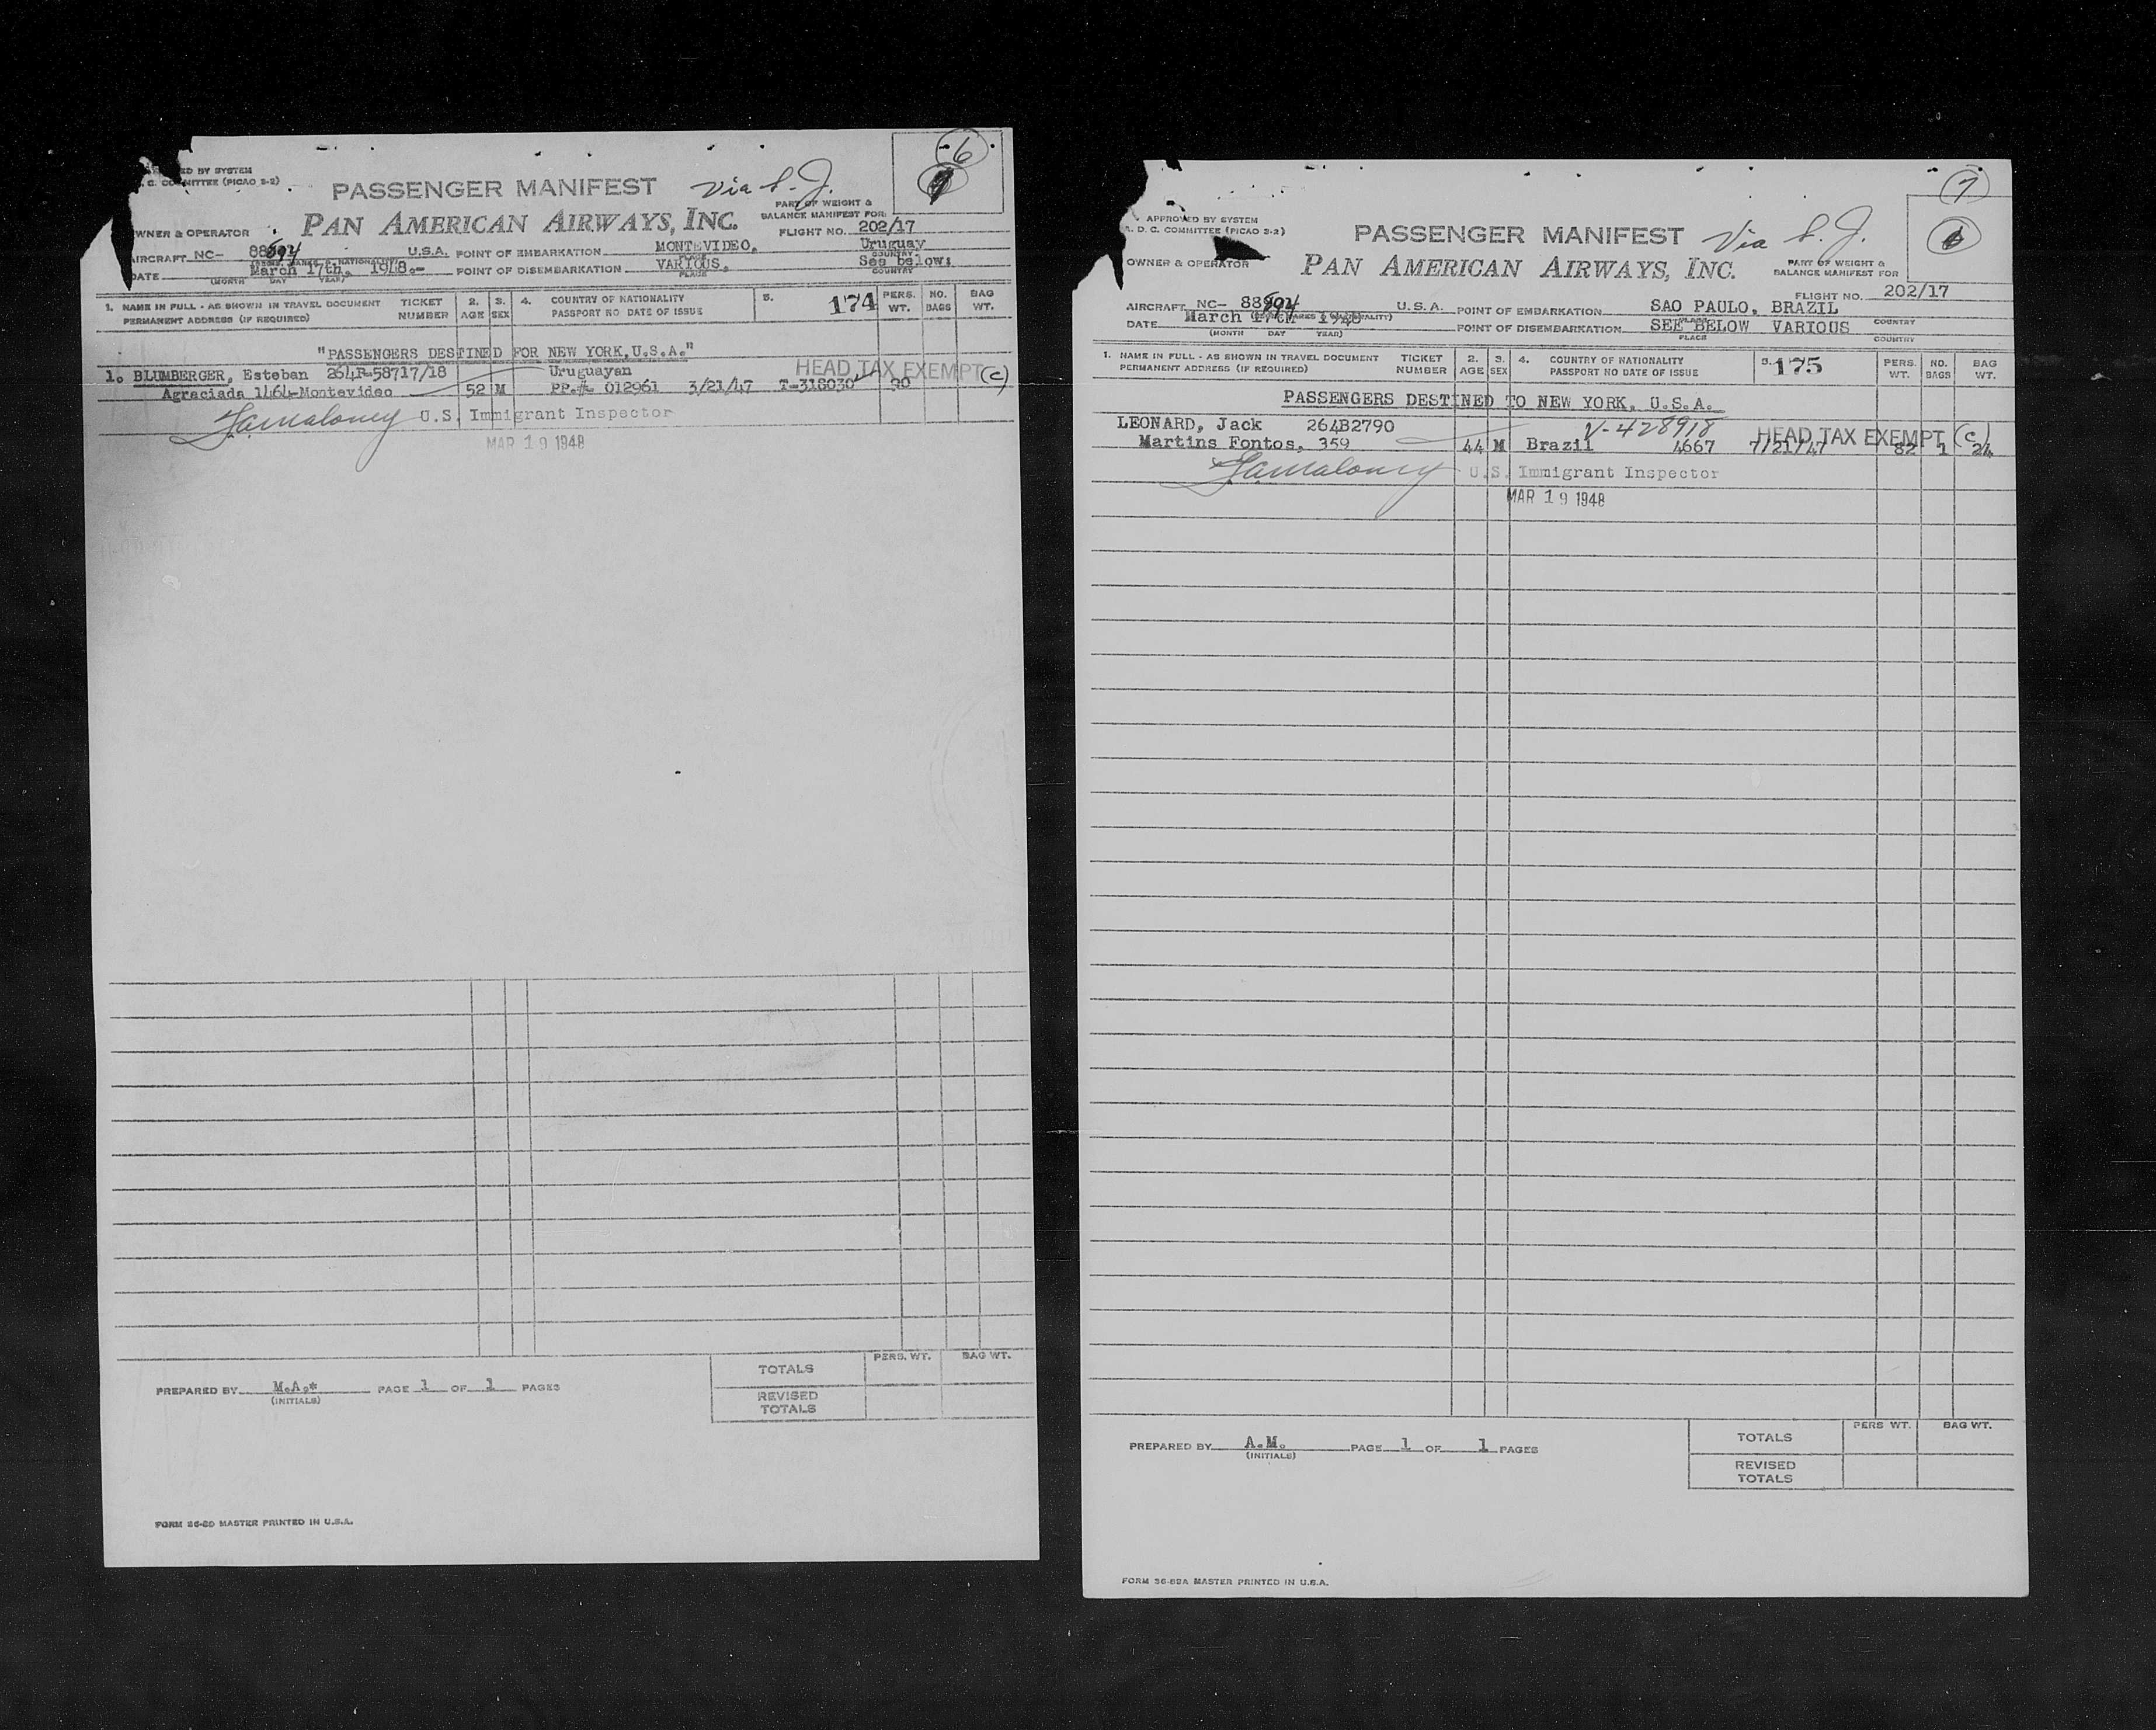 ED BY SYSTEM
. C. COMMITTEE (PICAO 2-2)
6
PASSENGER MANIFEST
PAN AMERICAN AIRWAYS, INC.
PART OF WEIGHT &
BALANCE MANIFEST FOR
FLIGHT NO. 202/17
WNER & OPERATOR
AIRCRAFT NC- U.S.A. POINT OF EMBARKATION MONTEVIDEO, Uruguay
PLACE COUNTRY
DATE March 17th. 1948.- POINT OF DISEMBARKATION VARIOUS. See below:
(MONTH DAY YEAR) PLACE COUNTRY
1. NAME IN FULL - AS SHOWN IN TRAVEL DOCUMENT TICKET 2. 3. 4. COUNTRY OF NATIONALITY 5. 174 PERS. NO. BAG
PERMANENT ADDRESS (IF REQUIRED) NUMBER AGE SEX PASSPORT NO DATE OF ISSUE WT. BAGS WT.
"PASSENGERS DESTINED FOR NEW YORK,U.S.A."
1. BLUMBERGER, Esteban 264R-58717/18 Uruguayan HEAD TAX EXEMPT (c)
Agraciada 1464-Montevideo 52 M PP.#. 012961 3/21/47 T-318030 90
U.S. Immigrant Inspector
MAR 19 1948
TOTALS PERS. WT. BAG WT.
REVISED
TOTALS
PREPARED BY M.A.* PAGE 1 OF 1 PAGES
(INITIALS)
FORM 36-89 MASTER PRINTED IN U.S.A.
7
APPROVED BY SYSTEM
. D. C. COMMITTEE (PICAO 2-2)
PASSENGER MANIFEST Via S. J.
OWNER & OPERATOR PAN AMERICAN AIRWAYS, INC.
PART OF WEIGHT &
BALANCE MANIFEST FOR
FLIGHT NO. 202/17
AIRCRAFT NC- U.S.A. POINT OF EMBARKATION SAO PAULO, BRAZIL
PLACE COUNTRY
DATE March 17th 1948 POINT OF DISEMBARKATION SEE BELOW VARIOUS
(MONTH DAY YEAR) PLACE COUNTRY
1. NAME IN FULL - AS SHOWN IN TRAVEL DOCUMENT TICKET 2. 3. 4. COUNTRY OF NATIONALITY 5. 175 PERS. NO. BAG
PERMANENT ADDRESS (IF REQUIRED) NUMBER AGE SEX PASSPORT NO DATE OF ISSUE WT. BAGS WT.
PASSENGERS DESTINED TO NEW YORK, U.S.A.
LEONARD, Jack 264B2790 V-428918 HEAD TAX EXEMPT (c)
Martins Fontos, 359 44 M Brazil 4667 7/21/47 82 1 24
U.S. Immigrant Inspector
MAR 19 1948
TOTALS PERS WT. BAG WT.
REVISED
TOTALS
PREPARED BY A.M. PAGE 1 OF 1 PAGES
(INITIALS)
FORM 36-89A MASTER PRINTED IN U.S.A.